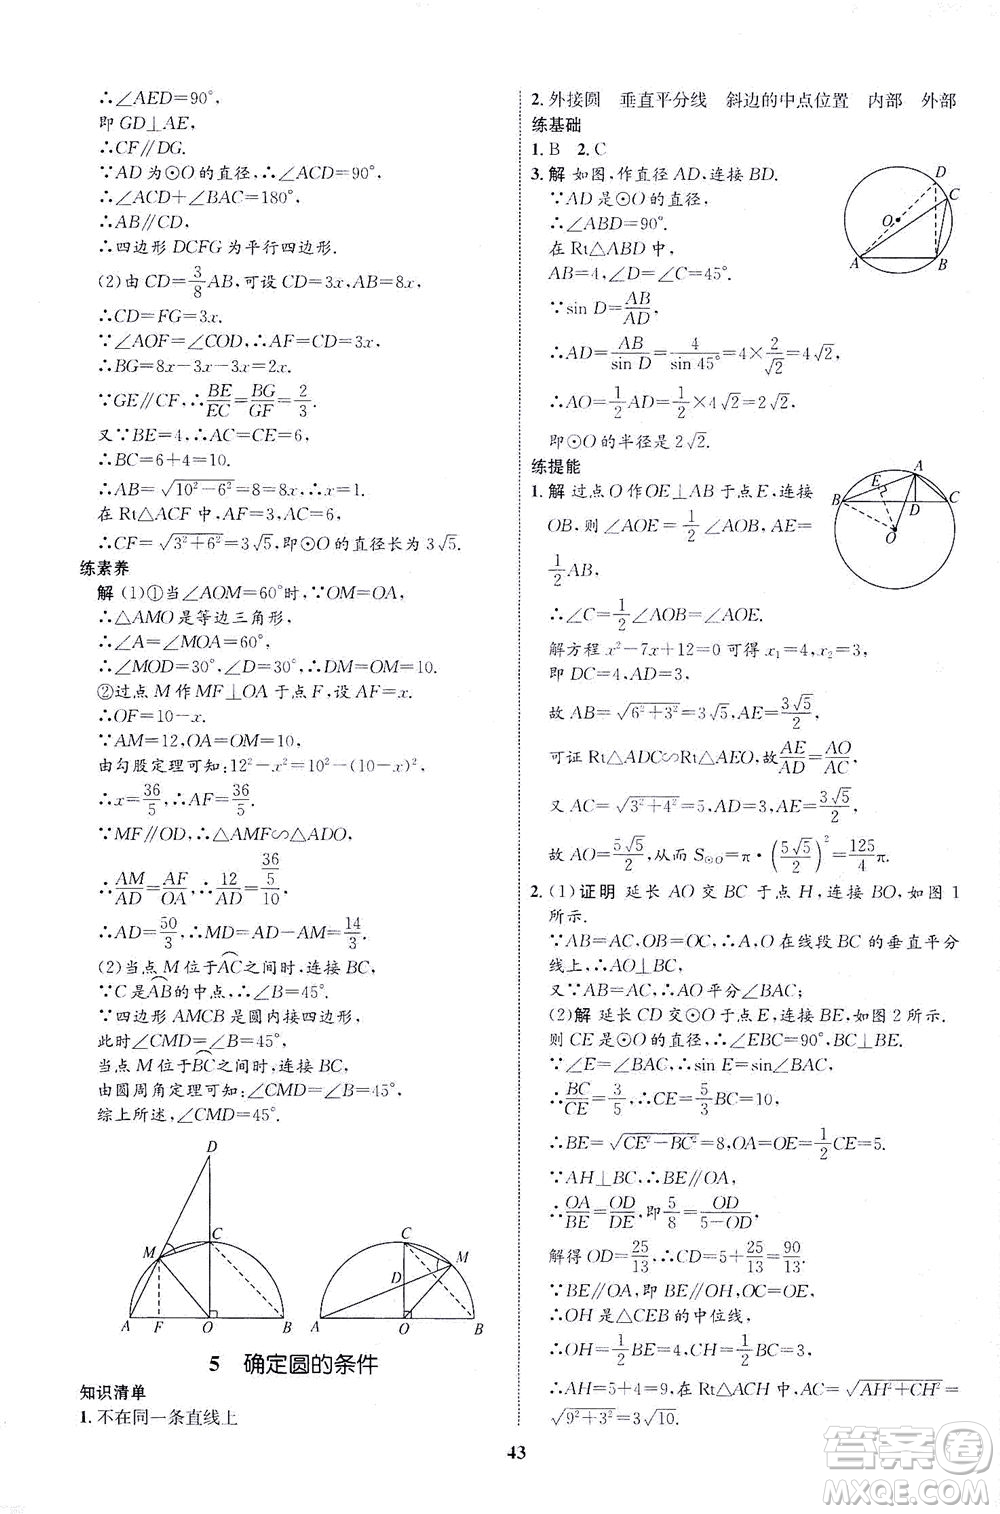 ∴∠AED=90°,
即 GD⊥AE,
∴CF∥DG.
∵AD 为⊙O 的直径,∴∠ACD=90°,
∴∠ACD+∠BAC=180°,
∴AB∥CD,
∴四边形 DCFG 为平行四边形.
(2)由 CD=3/8 AB,可设 CD=3x,AB=8x,
∴CD=FG=3x.
∵∠AOF=∠COD,∴AF=CD=3x,
∴BG=8x-3x-3x=2x.
∵GE∥CF,∴BE/EC=BG/GF=2/3.
又∵BE=4,∴AC=CE=6,
∴BC=6+4=10.
∴AB=√(10²-6²)=8=8x,∴x=1.
在 Rt△ACF 中,AF=3,AC=6,
∴CF=√(3²+6²)=3√5,即⊙O 的直径长为 3√5.
练素养
解 (1)①当∠AOM=60°时,∵OM=OA,
∴△AMO 是等边三角形,
∴∠A=∠MOA=60°,
∴∠MOD=30°,∠D=30°,∴DM=OM=10.
②过点 M 作 MF⊥OA 于点 F,设 AF=x.
∴OF=10-x.
∵AM=12,OA=OM=10,
由勾股定理可知:12²-x²=10²-(10-x)²,
∴x=36/5,∴AF=36/5.
∵MF∥OD,∴△AMF∽△ADO,
∴AM/AD=AF/OA,∴12/AD=(36/5)/10,
∴AD=50/3,∴MD=AD-AM=14/3.
(2)当点 M 位于AC之间时,连接 BC,
∵C 是AB的中点,∴∠B=45°.
∵四边形 AMCB 是圆内接四边形,
此时∠CMD=∠B=45°,
当点 M 位于BC之间时,连接 BC,
由圆周角定理可知:∠CMD=∠B=45°,
综上所述,∠CMD=45°.
D
M
C
A
F
O
B
C
M
D
A
O
B
5 确定圆的条件
知识清单
1.不在同一条直线上
2.外接圆 垂直平分线 斜边的中点位置 内部 外部
练基础
1.B 2.C
3.解 如图,作直径 AD,连接 BD.
∵AD 是⊙O 的直径,
∴∠ABD=90°.
在 Rt△ABD 中,
AB=4,∠D=∠C=45°.
∵sin D=AB/AD,
∴AD=AB/sin D=4/sin 45°=4×2/√2=4√2,
∴AO=1/2 AD=1/2×4√2=2√2.
即⊙O 的半径是 2√2.
D
C
O
A
B
练提能
1.解 过点 O 作 OE⊥AB 于点 E,连接
OB,则∠AOE=1/2∠AOB,AE=
1/2 AB,
∴∠C=1/2∠AOB=∠AOE.
解方程 x²-7x+12=0 可得 x₁=4,x₂=3,
即 DC=4,AD=3,
故 AB=√(6²+3²)=3√5,AE=3√5/2,
可证 Rt△ADC∽Rt△AEO,故AE/AD=AO/AC,
又 AC=√(3²+4²)=5,AD=3,AE=3√5/2,
故 AO=5√5/2,从而 S⊙O=π·(5√5/2)²=125/4 π.
A
E
B
D
C
O
2.(1)证明 延长 AO 交 BC 于点 H,连接 BO,如图 1
所示.
∵AB=AC,OB=OC,∴A,O 在线段 BC 的垂直平分
线上,∴AO⊥BC,
又∵AB=AC,∴AO 平分∠BAC;
(2)解 延长 CD 交⊙O 于点 E,连接 BE,如图 2 所示.
则 CE 是⊙O 的直径,∴∠EBC=90°,BC⊥BE.
∵∠E=∠BAC,∴sin E=sin∠BAC,
∴BC/CE=3/5,∴CE=5/3 BC=10,
∴BE=√(CE²-BC²)=8,OA=OE=1/2 CE=5.
∵AH⊥BC,∴BE∥OA,
∴OA/BE=OD/DE,即5/8=OD/(5-OD),
解得 OD=25/13,∴CD=5+25/13=90/13.
∵BE∥OA,即 BE∥OH,OC=OE,
∴OH 是△CEB 的中位线,
∴OH=1/2 BE=4,CH=1/2 BC=3,
∴AH=5+4=9,在 Rt△ACH 中,AC=√(AH²+CH²)=
√(9²+3²)=3√10.
43
答案圈
MXQE.COM